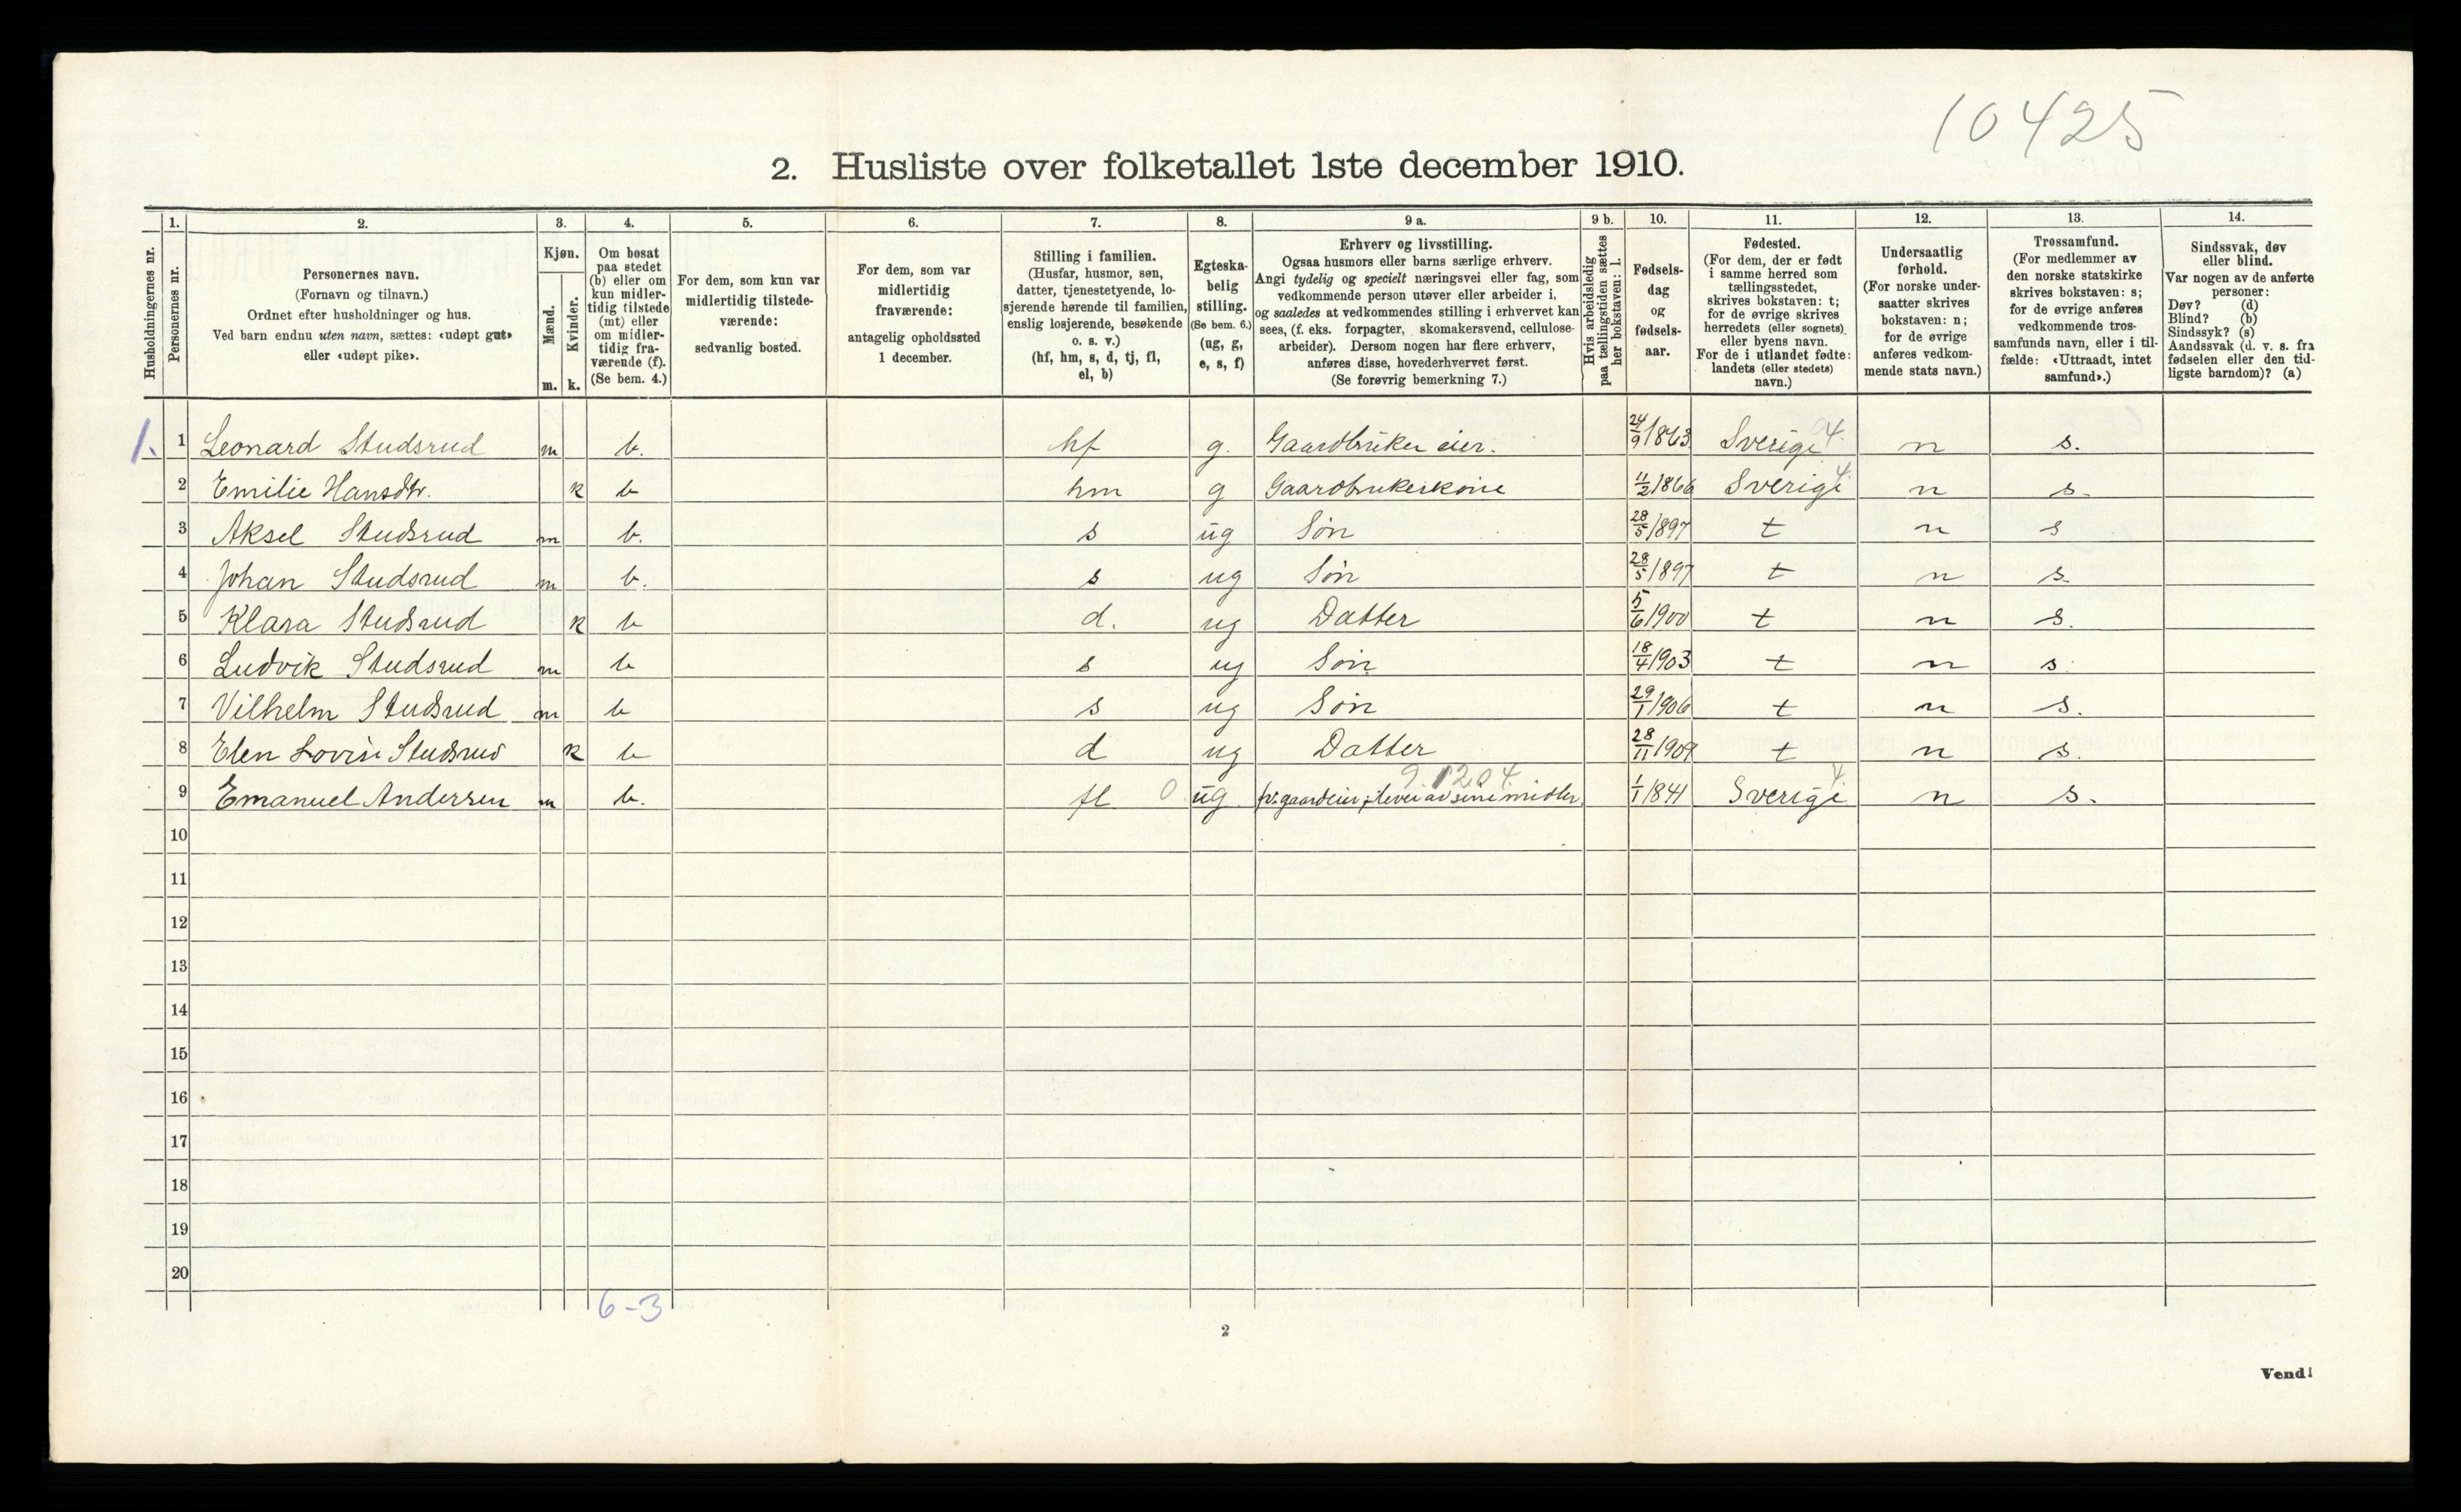 10425
2. Husliste over folketallet 1ste december 1910.
1. 2. 3. 4. 5. 6. 7. 8. 9 a. 9 b. 10. 11. 12. 13. 14.
Husholdningernes nr.
Personernes nr.
Personernes navn.
(Fornavn og tilnavn.)
Ordnet efter husholdninger og hus.
Ved barn endnu uten navn, sættes: «udøpt gut»
eller «udøpt pike».
Kjøn.
Mænd.
m.
Kvinder.
k.
Om bosat
paa stedet
(b) eller om
kun midler-
tidig tilstede
(mt) eller
om midler-
tidig fra-
værende (f).
(Se bem. 4.)
For dem, som kun var
midlertidig tilstede-
værende:
sedvanlig bosted.
For dem, som var
midlertidig
fraværende:
antagelig opholdssted
1 december.
Stilling i familien.
(Husfar, husmor, søn,
datter, tjenestetyende, lo-
sjerende hørende til familien,
enslig losjerende, besøkende
o. s. v.)
(hf, hm, s, d, tj, fl,
el, b)
Egteska-
belig
stilling.
(Se bem. 6.)
(ug, g,
e, s, f)
Erhverv og livsstilling.
Ogsaa husmors eller barns særlige erhverv.
Angi tydelig og specielt næringsvei eller fag, som
vedkommende person utøver eller arbeider i,
og saaledes at vedkommendes stilling i erhvervet kan
sees, (f. eks. forpagter, skomakersvend, cellulose-
arbeider). Dersom nogen har flere erhverv,
anføres disse, hovederhvervet først.
(Se forøvrig bemerkning 7.)
Hvis arbeidsledig
paa tællingstiden sættes
her bokstaven: l.
Fødsels-
dag
og
fødsels-
aar.
Fødested.
(For dem, der er født
i samme herred som
tællingsstedet,
skrives bokstaven: t;
for de øvrige skrives
herredets (eller sognets)
eller byens navn.
For de i utlandet fødte:
landets (eller stedets)
navn.)
Undersaatlig
forhold.
(For norske under-
saatter skrives
bokstaven: n;
for de øvrige
anføres vedkom-
mende stats navn.)
Trossamfund.
(For medlemmer av
den norske statskirke
skrives bokstaven: s;
for de øvrige anføres
vedkommende tros-
samfunds navn, eller i til-
fælde: «Uttraadt, intet
samfund».)
Sindssvak, døv
eller blind.
Var nogen av de anførte
personer:
Døv? (d)
Blind? (b)
Sindssyk? (s)
Aandssvak (d. v. s. fra
fødselen eller den tid-
ligste barndom)? (a)
1. 1 Leonard Studsrud m b. hf g. Gaardbruker eier. 24/9 1863 Sverige 4. n s.
2 Emilie Hansdtr. k b hm g Gaardbrukerkone 11/2 1866 Sverige 4. n s.
3 Aksel Studsrud m b. s ug Søn 28/5 1897 t n s
4 Johan Studsrud m b. s ug Søn 28/5 1897 t n s.
5 Klara Studsrud k b d. ug Datter 5/6 1900 t n s.
6 Ludvik Studsrud m b s ug Søn 18/4 1903 t n s.
7 Vilhelm Studsrud m b s ug Søn 29/1 1906 t n s.
8 Elen Lovise Studsrud k b d ug Datter 28/11 1909 t n s.
9.1204.
9 Emanuel Andersen m b. fl 0 ug fv. gaardeier, lever av sine midler 1/1 1841 Sverige 4. n s.
10
11
12
13
14
15
16
17
18
19
20
6-3
2
Vend!